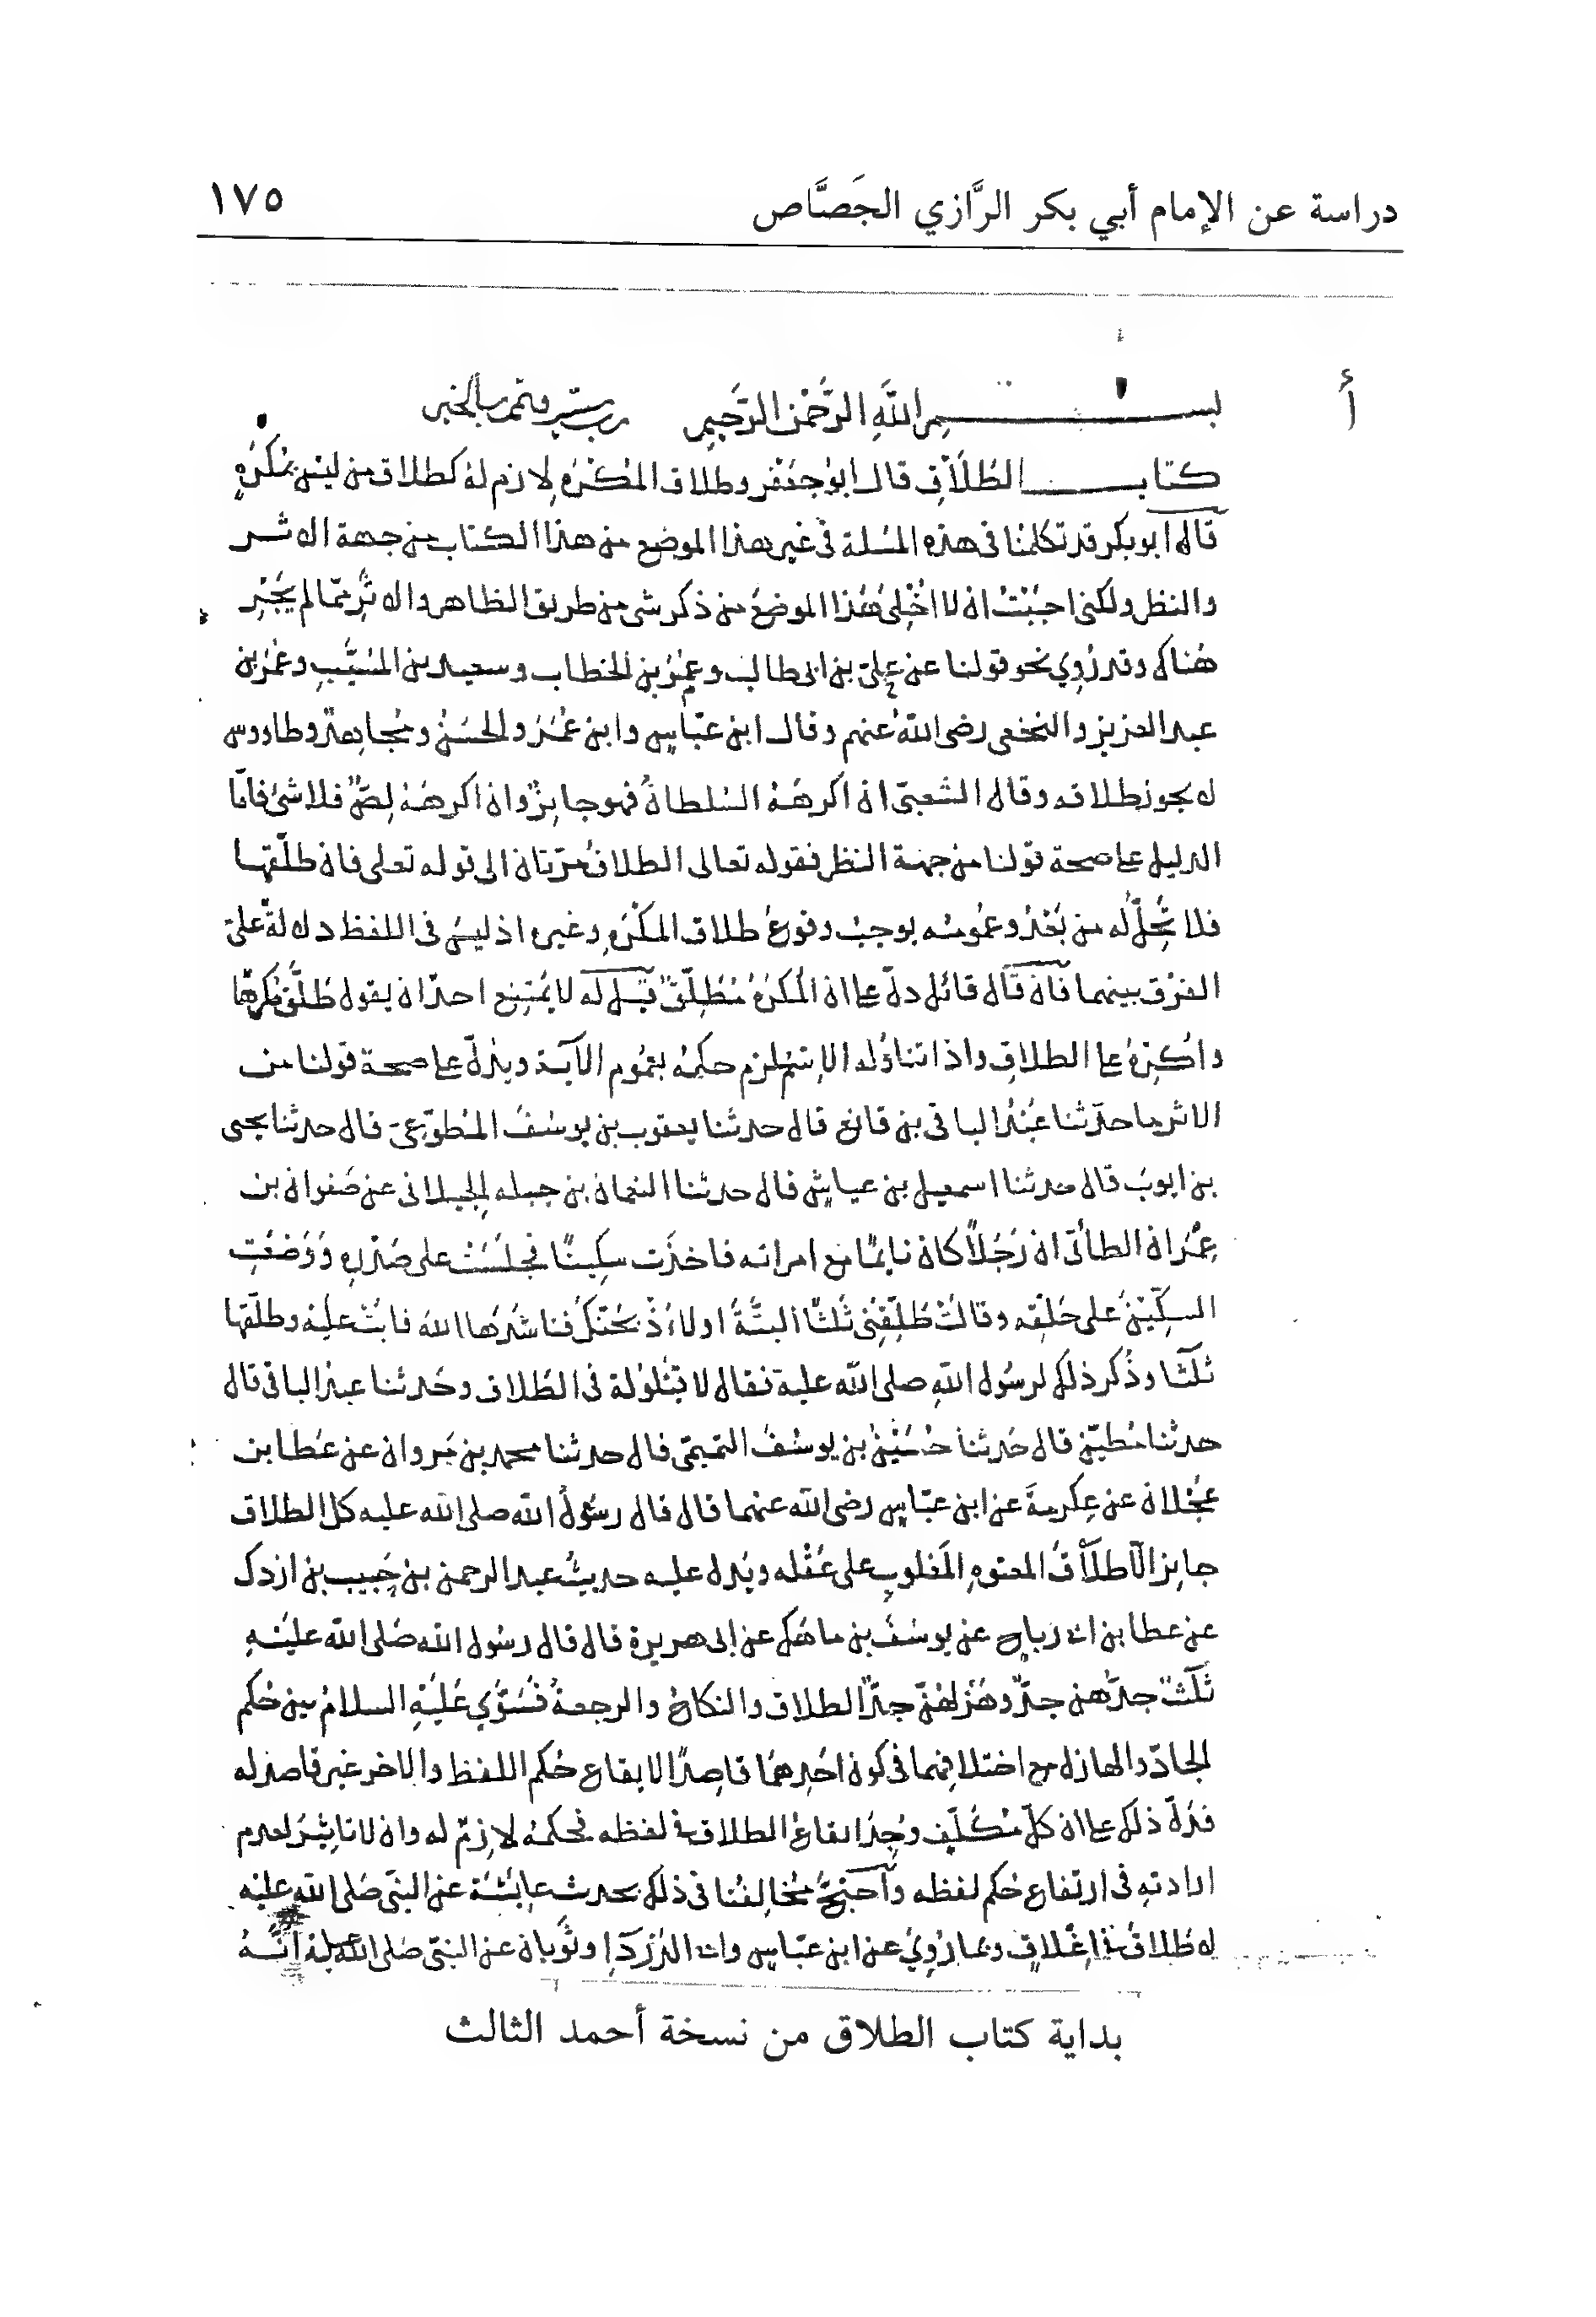 دراسة عن الإمام أبي بكر الرَّازي الجَصَّاص
١٧٥
أ
بسم الله الرَّحمن الرَّحيم رب يسر وتمم بالخير
كتاب الطلاق قال ابو جعفر وطلاق المكره لازم له كطلاق من ليس بمكره
قال ابو بكر قد تكلمنا فى هذه المسلة فى غير هذا الموضع من هذا الكتاب من جهة الاثر
والنظر ولكنى احببت ان لا اخلى هذا الموضع من ذكر شى من طريق الظاهر والاثر مما لم يجر
هناك وقد روي نحو قولنا عن على بن ابى طالب وعمر بن الخطاب وسعيد بن المسيب وعمر بن
عبد العزيز والنخعى رضى الله عنهم وقال ابن عباس وابن عمر والحسن ومجاهد وطاووس
لا يجوز طلاقه وقال الشعبى ان اكرهه السلطان فهو جايز وان اكرهه لص فلا شئ فامّا
الدليل على صحة قولنا من جهة النظر فقوله تعالى الطلاق مرتان الى قوله تعلى فان طلّقها
فلا تحل له من بعد وعمومه يوجب وقوع طلاق المكره وغيره اذ ليس فى اللفظ دلالة على
الفرق بينهما فان قال قائل دلّ على ان المكره مطلّق قيل له لا يمتنع احد ان يقول طلّق مكرها
واكره على الطلاق واذا تناوله الاسم لزم حكمه بعموم الآية ويدلّ على صحة قولنا من
الاثر ما حدّثنا عبد الباقى بن قانع قال حدثنا يعقوب بن يوسف المطوّعى قال حدثنا يحيى
بن ايوب قال حدثنا اسمعيل بن عياش قال حدثنا النعمان بن جبله الجيلانى عن صفوان بن
عمران الطائى ان رجلا كان نايما مع امراته فاخذت سكينا فجلست على صدره ووضعت
السكين على حلقه وقالت طلقنى ثلثا البتة اولا فناشدها الله فابت عليه وطلّقها
ثلثا وذكر ذلك لرسول الله صلى الله عليه فقال لا قيلولة فى الطلاق وحدثنا عبد الباقى قال
حدثنا مطيّن قال حدثنا حسين بن يوسف التميمى قال حدثنا محمد بن مروان عن عطا بن
عجلان عن عكرمة عن ابن عبّاس رضى الله عنهما قال قال رسول الله صلى الله عليه كل الطلاق
جايز الا طلاق المعتوه المغلوب على عقله ويدل عليه حديث عبد الرحمن بن حبيب بن ازدك
عن عطا بن ابى رباح عن يوسف بن ماهك عن ابى هريرة قال قال رسول الله صلى الله عليه
ثلث جدهن جدّ وهزلهن جدّ الطلاق والنكاح والرجعة فسوّي عليه السلام بين حكم
الجادّ والهازل مع اختلافهما فى كون احدهما قاصدا لايقاع حكم اللفظ والاخر غير قاصد له
فدلّ ذلك على ان كلّ مكلّف وجد ايقاع الطلاق فى لفظه فحكمه لازم له وان لا تاثير لعدم
ارادته فى ارتفاع حكم لفظه واحتج مخالفنا فى ذلك بحديث عايشة عن النبى صلى الله عليه
لا طلاق فى اغلاق وبما روي عن ابن عبّاس وابى الدردا وثوبان عن النبى صلى الله عليه انه
بداية كتاب الطلاق من نسخة أحمد الثالث